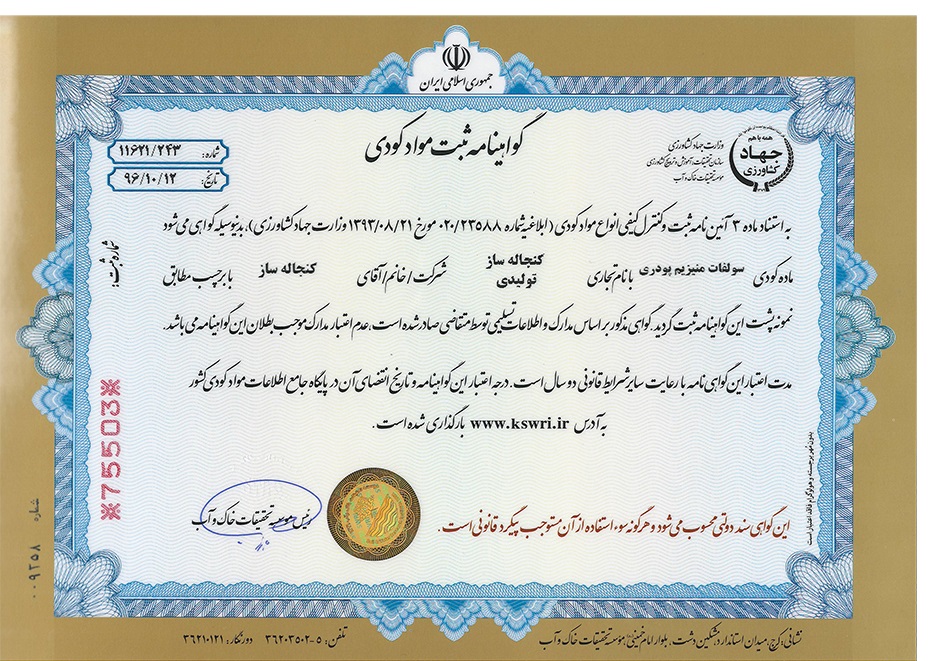 جمهوری اسلامی ایران
همه با هم
جهاد
کشاورزی
وزارت جهاد کشاورزی
سازمان تحقیقات، آموزش و ترویج کشاورزی
موسسه تحقیقات خاک و آب
گواهینامه ثبت مواد کودی
شماره: ۱۱۶۲۱/۲۴۳
تاریخ: ۹۶/۱۰/۱۲
به استناد ماده ۳ آئین نامه ثبت و کنترل کیفی انواع مواد کودی (ابلاغیه شماره ۰۲۰/۲۳۵۸۸ مورخ ۱۳۹۳/۰۸/۲۱ وزارت جهاد کشاورزی)، بدینوسیله گواهی می‌شود
ماده کودی سولفات منیزیم پودری با نام تجاری کنجاله ساز تولیدی شرکت/خانم/آقای کنجاله ساز با برچسب مطابق
نمونه پشت این گواهینامه ثبت گردید. گواهی مذکور بر اساس مدارک و اطلاعات تسلیمی توسط متقاضی صادر شده است، عدم اعتبار مدارک موجب بطلان این گواهینامه می باشد.
مدت اعتبار این گواهی نامه با رعایت سایر شرایط قانونی دو سال است. درجه اعتبار این گواهینامه و تاریخ انقضای آن در پایگاه جامع اطلاعات مواد کودی کشور
به آدرس www.kswri.ir بارگذاری شده است.
شماره ثبت:
※75503※
این گواهی سند دولتی محسوب می شود و هرگونه سوء استفاده از آن مستوجب پیگرد قانونی است.
رئیس موسسه تحقیقات خاک و آب
بدون مهر برجسته و هولوگرام فاقد اعتبار است
شماره
۰۰۹۳۵۸
نشانی: کرج، میدان استاندارد، مشکین دشت، بلوار امام خمینی، موسسه تحقیقات خاک و آب
تلفن: ۵-۳۶۲۰۳۵۰۲ دورنگار: ۳۶۲۱۰۱۲۱